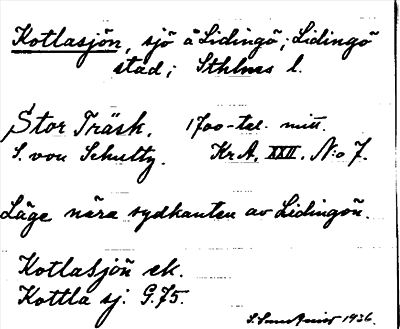 Kotlasjön, sjö å Lidingö; Lidingö
stad; Sthlms l.
Stor Träsk. 1700-tal. mitt.
S. von Schultz. KrA, XXII. N:o 7.
Läge nära sydkanten av Lidingön.
Kotlasjön ek.
Kottla sj: G.75.
1936